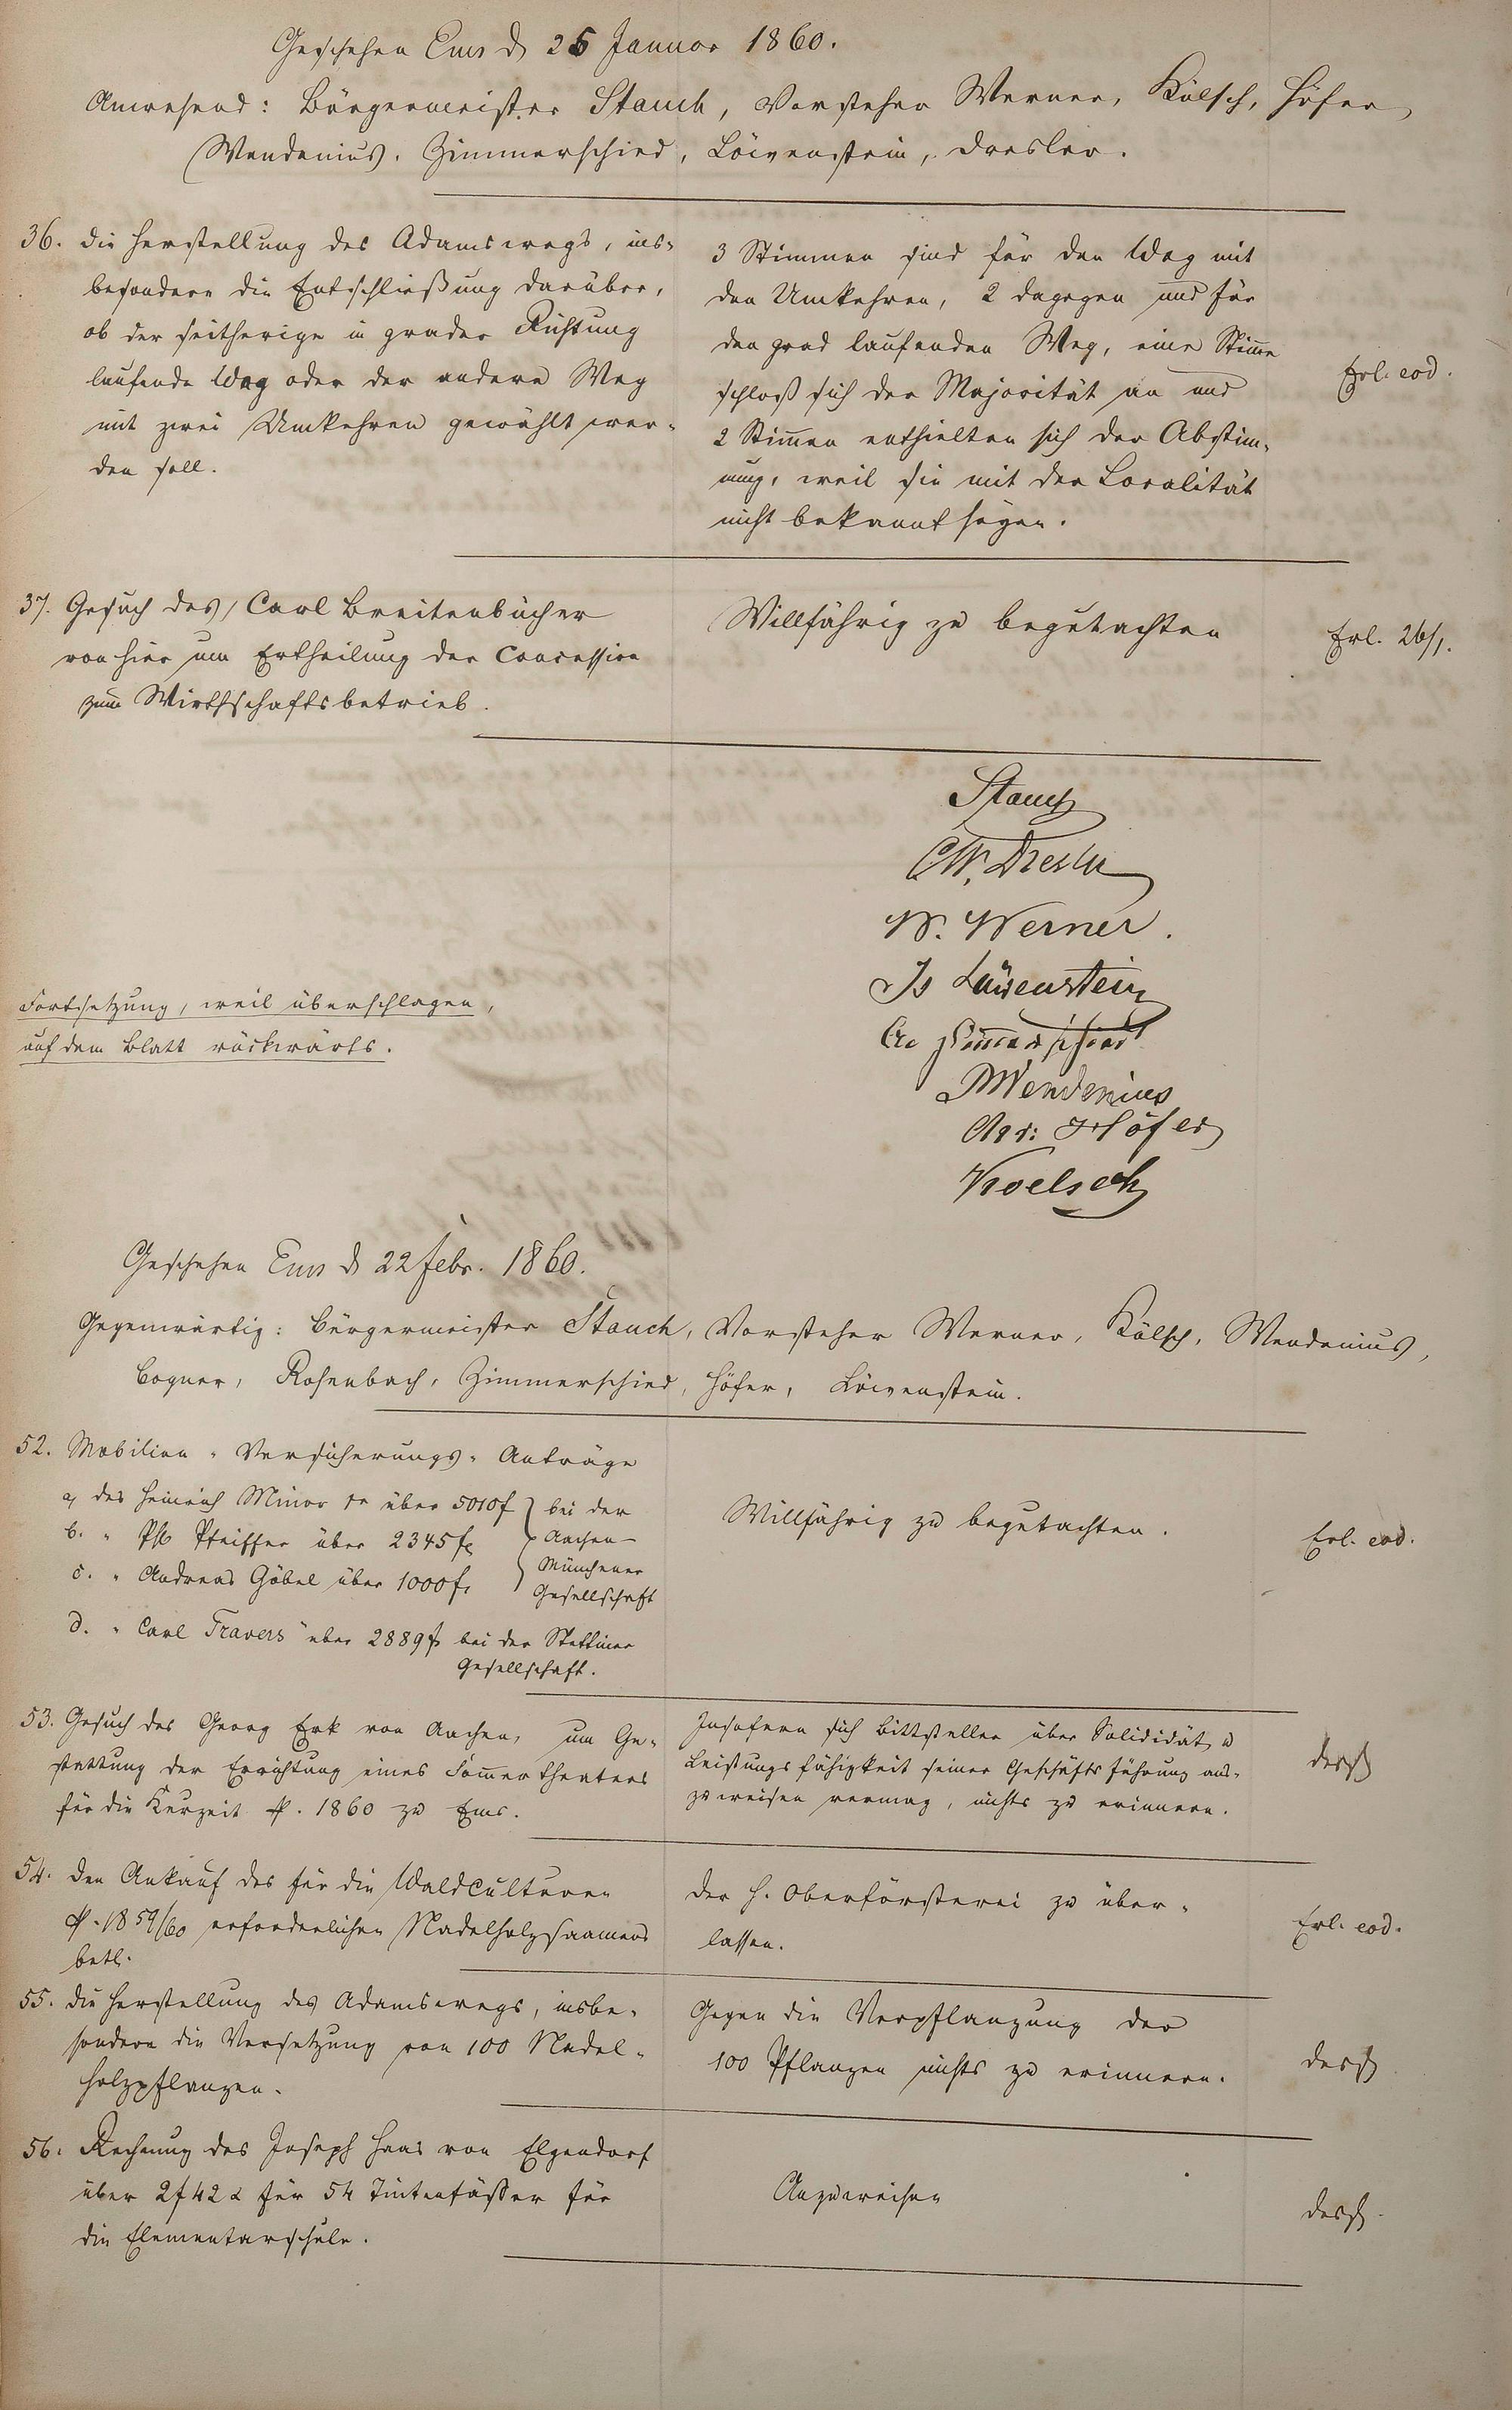 Geschehen Ems d 25 Januar 1860.
Anwesend: Bürgermeister Stauch, Vorsteher Werner, Kölsch, Höfer,
Wendenius, Zimmerschied, Löwenstein, Dresler.
36. die Herstellung des Adamswegs, ins-
besondere die Entschließung darüber,
ob der seitherige in grader Richtung
laufende Weg oder der andere Weg
mit zwei Umkehren gewählt wer-
den soll.
3 Stimmen sind für den Weg mit
den Umkehren, 2 dagegen und für
den grad laufenden Weg, eine Stimme
schloß sich der Majorität an und
2 Stimmen enthielten sich der Abstim-
mung, weil sie mit der Localität
nicht bekannt seyen.
Erl. eod.
37. Gesuch des Carl Breitenbücher
von hier um Ertheilung der Concession
zum Wirthschaftsbetrieb.
Willfährig zu begutachten
Erl. 26/1.
Stauch
CW. Dresler
W. Werner.
Is Löwenstein
Zimmerschied
Wendenius
Höfer
Koelsch
Fortsetzung, weil überschlagen,
auf dem Blatt rückwärts.
Geschehen Ems d 22 Febr. 1860.
Gegenwärtig: Bürgermeister Stauch, Vorsteher Werner, Kölsch, Wendenius,
Bogner, Rosenbach, Zimmerschied, Höfer, Löwenstein.
52. Mobilien-Versicherungs-Anträge
a, des Heinrich Minor 1r über 5010f
b. " Ph Pfeiffer über 2345f
c. " Andreas Göbel über 1000f.
bei der
Aachen-
Münchener
Gesellschaft
d. " Carl Travers über 2889f bei der Stettiner
Gesellschaft.
Willfährig zu begutachten.
Erl. eod.
53. Gesuch des Georg Erk von Aachen, um Ge-
stattung der Errichtung eines Sommertheaters
für die Kurzeit p. 1860 zu Ems.
Insofern sich Bittsteller über Solididät u
Leistungsfähigkeit seiner Geschäftsführung aus-
zuweisen vermag, nichts zu erinnern.
desgl
54. den Ankauf des für die Waldculturen
p. 1859/60 erforderlichen Nadelholzsaamens
betl.
Der H. Oberförsterei zu über-
lassen.
Erl. eod.
55. die Herstellung des Adamswegs, insbe-
sondere die Versetzung von 100 Nadel-
holzpflanzen.
Gegen die Verpflanzung der
100 Pflanzen nichts zu erinnern.
desgl
56. Rechnung des Joseph Haas von Elgendorf
über 2f 42 x für 54 Tintenfässer für
die Elementarschule.
Anzuweisen
desgl.